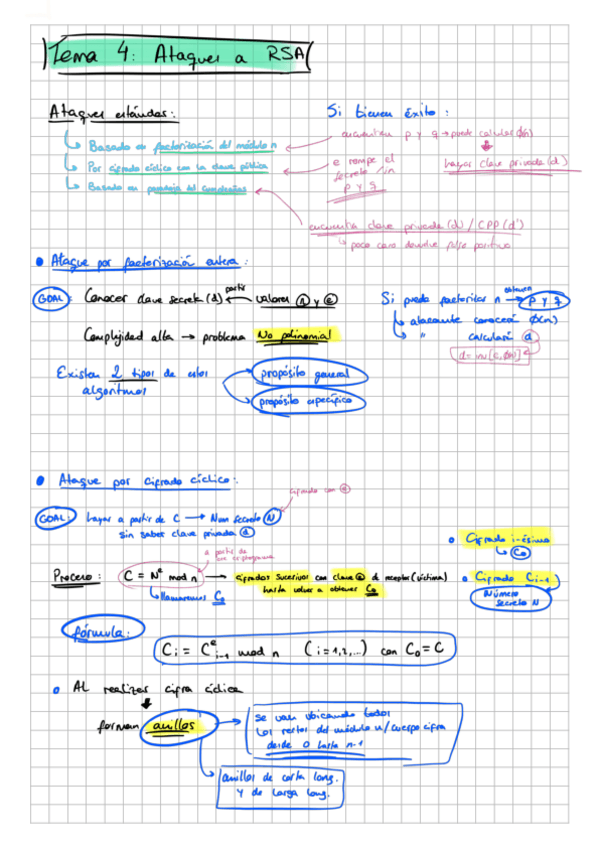 Tema 4: Ataques a RSA
Ataques estándares:
Si tienen éxito:
Basado en factorización del módulo n
encuentran p y q → puede calcular Ø(n)
Por cifrado cíclico con la clave pública
se rompe el secreto sin p y q
hayar clave privada (d)
Basado en paradoja del cumpleaños
encuentra clave privada (d) / CPP (d')
poco caro devolver falso positivo
Ataque por factorización entera:
GOAL: Conocer clave secreta (d) ← partir valores n y e
Si puedo factorizar n → obtienen p y q
atacante conocerá Ø(n)
" calculará d
d = inv [e, Ø(n)]
Complejidad alta → problema No polinomial
Existen 2 tipos de estos algoritmos
propósito general
propósito específico
Ataque por cifrado cíclico:
cifrado con e
GOAL: hayar a partir de C → Num secreto N
sin saber clave privada d
Cifrado i-ésimo
C₀
a partir de
Proceso: C = Nᵉ mod n → cifrados sucesivos con clave e de receptor (víctima)
hasta volver a obtener C₀
llamaremos C₀
Cifrado Cᵢ₋₁
Número secreto N
fórmula:
Cᵢ = Cᵉᵢ₋₁ mod n (i = 1,2,...) con C₀ = C
AL realizar cifra cíclica
forman anillos
se van ubicando todos
los restos del módulo n/cuerpo cifra
desde 0 hasta n-1
anillos de corta long.
y de larga long.